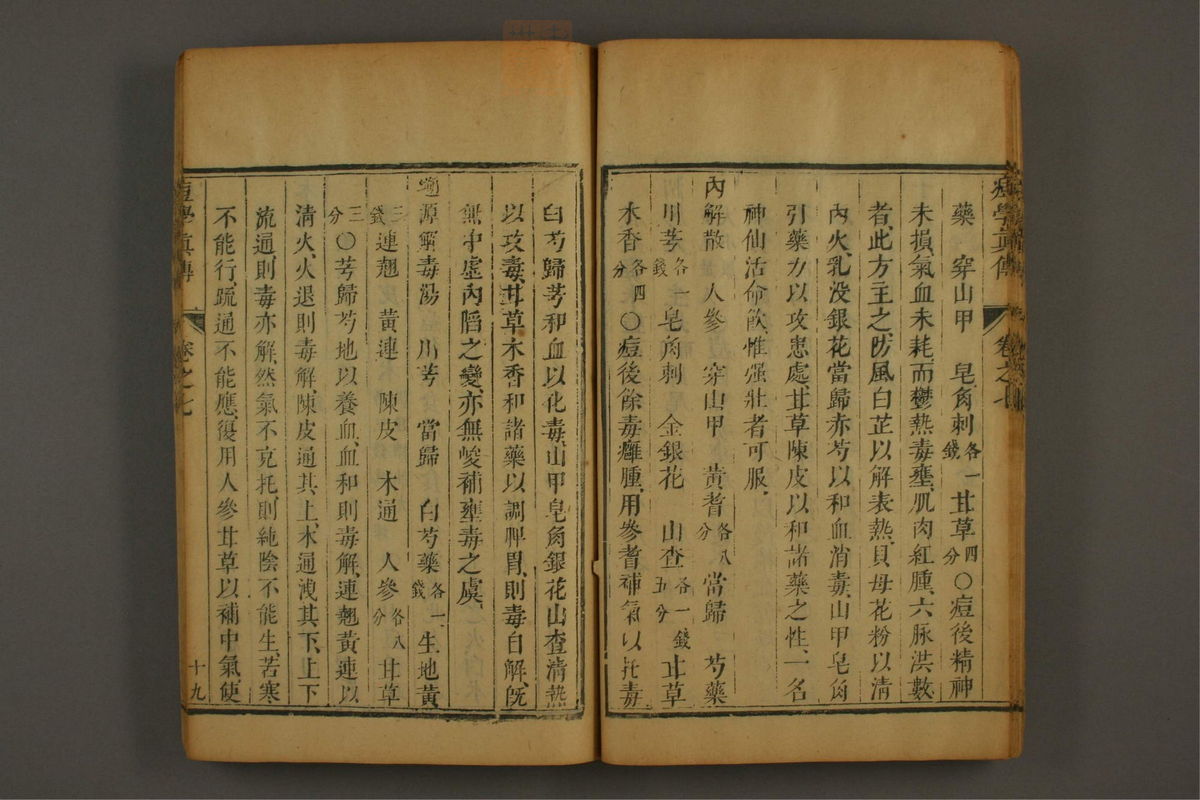 藥　穿山甲　皂角刺各一錢甘草四分〇痘後精神
未損氣血未耗而鬱熱毒壅肌肉紅腫六脉洪數
者此方主之防風白芷以解表熱貝母花粉以清
內火乳没銀花當歸赤芍以和血消毒山甲皂角
引藥力以攻患處甘草陳皮以和諸藥之性一名
神仙活命飲惟强壯者可服
內解散　人參　穿山甲　黃耆各八分當歸　芍藥
川芎各一錢皂角刺　金銀花　山查各一錢五分甘草
木香各四分〇痘後餘毒癰腫用參耆補氣以托毒
痘學眞傳　卷之七
白芍歸芎和血以化毒山甲皂角銀花山查清熱
以攻毒甘草木香和諸藥以調脾胃則毒自解旣
無中虛內陷之變亦無峻補壅毒之虞
源解毒湯　川芎　當歸　白芍藥各一錢生地黃
三錢連翹　黃連　陳皮　木通　人參各八分甘草
三分〇芎歸芍地以養血血和則毒解連翹黃連以
清火火退則毒解陳皮通其上木通洩其下上下
流通則毒亦解然氣不克托則純陰不能生苦寒
不能行疏通不能應復用人參甘草以補中氣使
痘學眞傳　卷之七　十九